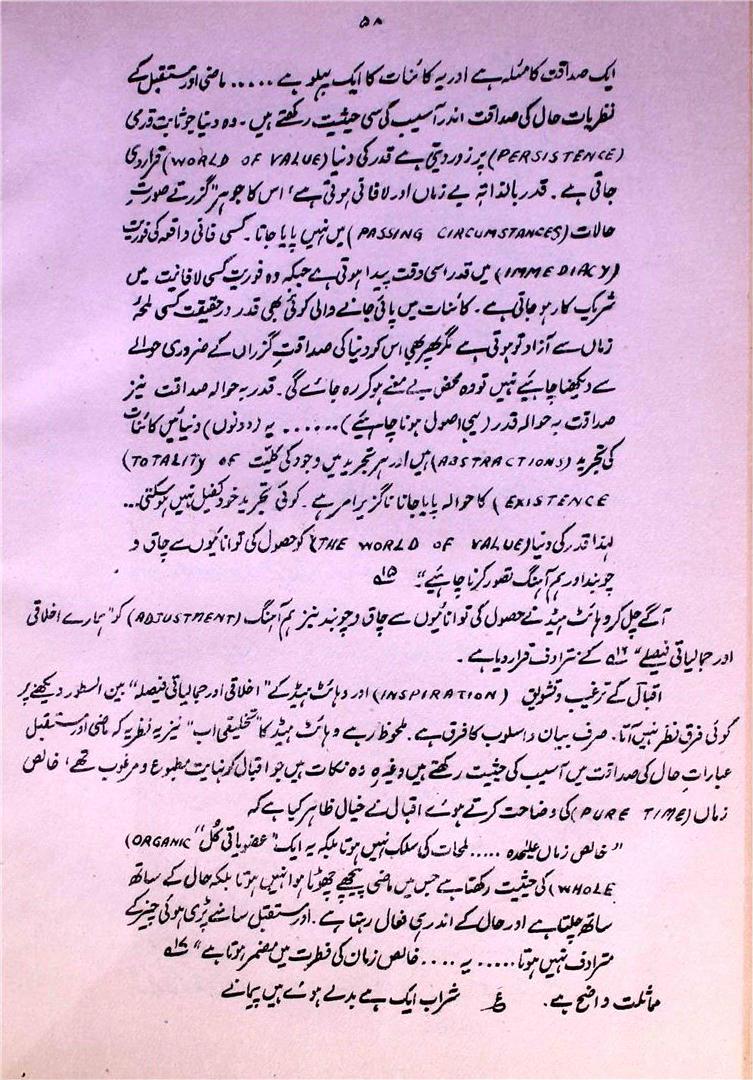 ۵۸
ایک صداقت کا مسئلہ ہے اور یہ کائنات کا ایک پہلو ہے ..... ماضی اور مستقبل کے
نظریات حال کی صداقت اندر آسیب کی سی حیثیت رکھتے ہیں۔ وہ دنیا جو ثابت قدمی
(PERSISTENCE) پر زور دیتی ہے قدر کی دنیا (WORLD OF VALUE) قرار دی
جاتی ہے۔ قدر بالذاتہ بے زماں اور لافانی ہوتی ہے، اس کا جوہر گزرتے صورتِ
حالات (PASSING CIRCUMSTANCES) میں نہیں پایا جاتا۔ کسی فانی واقعہ کی فوریت
(IMMEDIACY) میں قدر اسی وقت پیدا ہوتی ہے جبکہ وہ فوریت کسی لافانیت میں
شریک کار ہو جاتی ہے۔ کائنات میں پائی جانے والی کوئی بھی قدر درحقیقت کسی لمحۂ
زماں سے آزاد تو ہوتی ہے مگر پھر بھی اس کو دنیا کی صداقتِ گزراں کے ضروری حوالے
سے دیکھنا چاہئیے نہیں تو وہ محض بے معنے ہو کر رہ جائے گی۔ قدر بہ حوالہ صداقت نیز
صداقت بہ حوالہ قدر (یہی اصول ہونا چاہئیے) ...... یہ (دونوں) دنیائیں کائنات
کی تجرید (ABSTRACTIONS) ہیں اور ہر تجرید میں وجود کی کلیّت (TOTALITY OF
EXISTENCE) کا حوالہ پایا جانا ناگزیر امر ہے۔ کوئی تجرید خود کفیل نہیں ہو سکتی...
لہذا قدر کی دنیا (THE WORLD OF VALUE) کو حصول کی توانائیوں سے چاق و
چوبند اور ہم آہنگ تصور کرنا چاہئیے" ۱۵؎
آگے چل کر وہائٹ ہیڈ نے حصول کی توانائیوں سے چاق و چوبند نیز ہم آہنگ (ADJUSTMENT) کو "ہمارے اخلاقی
اور جمالیاتی فیصلے" ۱۶؎ کے مترادف قرار دیا ہے۔
اقبال کے ترغیب و تشویق (INSPIRATION) اور وہائٹ ہیڈ کے "اخلاقی اور جمالیاتی فیصلہ" بین السطور دیکھنے پر
کوئی فرق نظر نہیں آتا۔ صرف بیان و اسلوب کا فرق ہے۔ ملحوظ رہے وہائٹ ہیڈ کا "تخلیقی اب" نیز یہ نظریہ کہ ماضی اور مستقبل
عبارات حال کی صداقت میں آسیب کی حیثیت رکھتے ہیں وغیرہ وہ نکات ہیں جو اقبال کو نہایت مطبوع و مرغوب تھے، خالص
زماں (PURE TIME) کی وضاحت کرتے ہوئے اقبال نے خیال ظاہر کیا ہے کہ
"خالص زماں علیٰحدہ ..... لمحات کی سلک نہیں ہوتا بلکہ یہ ایک "عضویاتی کُل" (ORGANIC
WHOLE) کی حیثیت رکھتا ہے جس میں ماضی پیچھے چھوٹا ہوا نہیں ہوتا بلکہ حال کے ساتھ
ساتھ چلتا ہے اور حال کے اندر ہی فعال رہتا ہے۔ اور مستقبل سامنے پڑی ہوئی چیز کے
مترادف نہیں ہوتا ..... یہ .... خالص زمان کی فطرت میں مضمر ہوتا ہے" ۱۷؎
مماثلت واضح ہے۔ ع شراب ایک ہے بدلے ہوئے ہیں پیمانے